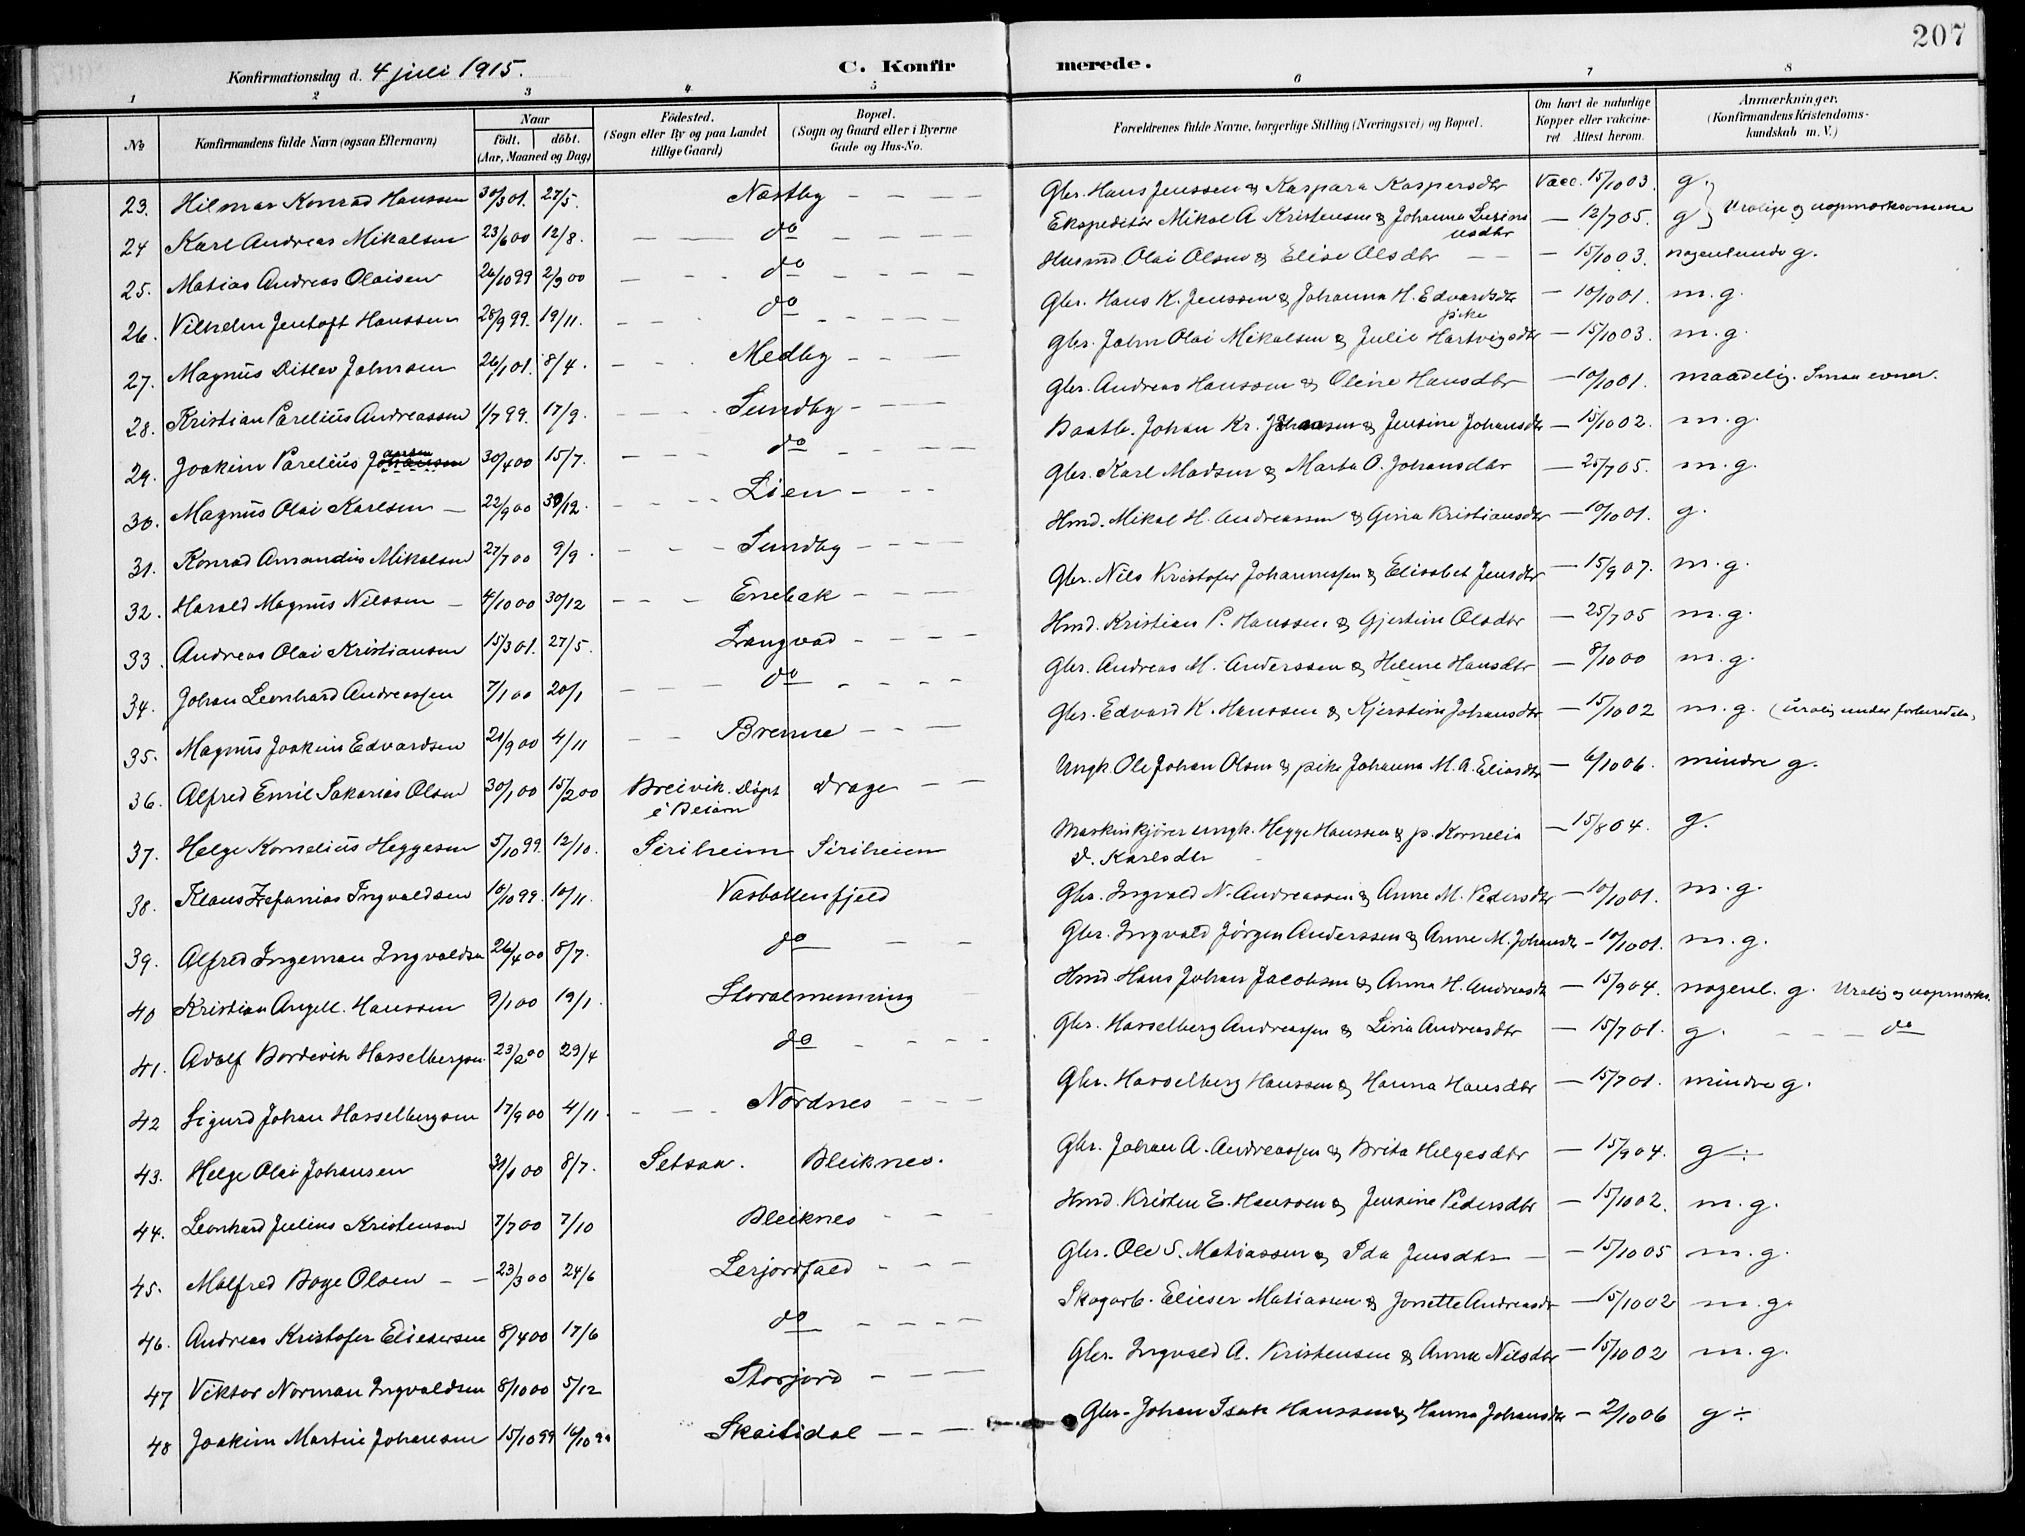 207
Konfirmationsdag d. 4 juli 1915.
C. Konfir merede.
1 2 3 4 5 6 7 8
No Konfirmandens fulde Navn (ogsaa Efternavn) Naar født. døbt. (Aar, Maaned og Dag) Fødested. (Sogn eller By og paa Landet tillige Gaard) Bopæl. (Sogn og Gaard eller i Byerne Gade og Hus-No. Forældrenes fulde Navne, borgerlige Stilling (Næringsvei) og Bopæl. Om havt de naturlige Kopper eller vakcineret Attest herom. Anmærkninger. (Konfirmandens Kristendomskundskab m. V.)
23. Hilmar Konrad Hanssen 30/3 01. 27/5. Næstby Gbr. Hans Jenssen & Kaspara Kaspersdtr Vacc. 15/10 03. g.
24 Karl Andreas Mikalsen 23/6 00 12/8. do Ekspeditør Mikal A Kristensen & Johanna — 12/7 05. g Urolige og uopmerksomme
25. Matias Andreas Olaisen 26/10 99 2/9 00 do Husmd Olai Olsen & Elise Olsdtr — 15/10 03. nogenlunde g.
26. Vilhelm Jentoft Hanssen 28/9 99. 19/11. do Gbr. Hans K. Jenssen & Johanna H. Edvardsdtr — 10/10 01. m.g.
27. Magnus Ditlev Johnsen 26/1 01. 8/4. Medby gbr. John Olai Mikalsen & pike Julie Hartvigsdtr — 15/10 03. m.g.
28. Kristian Parelius Andreassen 1/7 99. 17/9. Sundby Gbr. Andreas Hanssen & Oline Hansdtr — 10/10 01. maadelig. Smaa evner.
29. Joakim Parelius Johansen 30/4 00 15/7. do Baatb. Johan Kr. Johansen & Jensine Johansdtr — 15/10 02. m.g.
30. Magnus Olai Karlsen — 22/9 00 30/12. Lien Gbr. Karl Madsen & Marta O. Johansdtr — 25/7 05. m.g.
31. Konrad Amandus Mikalsen 27/7 00 9/9. Sundby Hmd. Mikal H. Andreassen & Gina Kristiansdtr — 10/10 01. g.
32. Harald Magnus Nilssen — 4/10 00 30/12 Enebak Gbr. Nils Kristofer Johannessen & Elisabet Jensdtr — 15/9 07. m.g.
33. Andreas Olai Kristiansen 15/3 01. 27/5. Langvad Hmd. Kristian P. Hanssen & Gjertine Olsdtr — 25/7 05 m.g.
34. Johan Leonhard Andreassen 7/1 00 20/1 do Gbr. Andreas M. Anderssen & Helene Hansdtr — 8/10 00 m.g.
35. Magnus Joakim Edvardsen 21/9 00 4/11 Brenne Gbr. Edvard K. Hanssen & Kjerstine Johansdtr — 15/10 02 m.g. (urolig under forberedels.
36. Alfred Emil Sakarias Olsen 30/1 00 15/2 00 Breivik. Døpt i Beiarn Drage Ungk. Ole Johan Olsen & pike Johanna M. A. Eliasdtr — 6/10 06. mindre g.
37. Helge Kornelius Heggesen 5/10 99. 12/10. Siriheim Siriheim Maskinkjører ungk. Hegge Hanssen & p. Kornelia D. Karlsdtr — 15/8 04. g.
38. Klaus Zefanias Ingvaldsen 10/10 99. 10/11. Vasbottenfjeld Gbr. Ingvald N. Andreassen & Anne M. Pedersdtr — 10/10 01. m.g.
39. Alfred Ingeman Ingvaldsen 26/4 00 8/7. do Gbr. Ingvald Jørgen Anderssen & Anne M. Johansdtr — 10/10 01. m.g.
40 Kristian Angell. Hanssen 9/1 00 19/1. Storalmenning Hmd Hans Johan Jacobsen & Anna H. Andreasdtr — 15/9 04. nogenl. g. Urolig og uopmerks.
41. Adolf Bordevik Hasselbergsen. 23/2 00 29/4 do Gbr. Hasselberg Andreassen & Lina Andreasdtr — 15/7 01. g. do
42 Sigurd Johan Hasselbergsen 17/9 00 4/11. Nordnes Gbr. Hasselberg Hanssen & Hanna Hansdtr — 15/7 01. mindre g.
43. Helge Olai Johansen 31/1 00 8/7. Setsaa. Bleiknes. Gbr. Johan A. Andreassen & Brita Helgesdtr — 15/9 04. g ÷
44. Leonhard Julius Kristensen 7/7 00 7/10 Bleiknes Hmd. Kristen E. Hanssen & Jensine Pedersdtr — 15/10 02. m.g.
45. Malfred Boye Olsen — — 23/3 00 24/6 Lerjordfald Gbr. Ole S. Matiassen & Ida Jensdtr — 15/10 05 m.g.
46. Andreas Kristofer Eliesersen 8/4 00 17/6 do Skogarb. Elieser Matiassen & Jonette Andreasdtr — 15/10 02 m.g.
47 Viktor Norman Ingvaldsen 8/10 00 5/12 Storjord Gbr. Ingvald A. Kristensen & Anna Nilsdtr — 15/10 02 m.g.
48 Joakim Martin Johansen 15/10 99 16/10 99 Skaitidal Gbr. Johan Isak Hanssen & Hanna Johansdtr — 2/10 06 g ÷